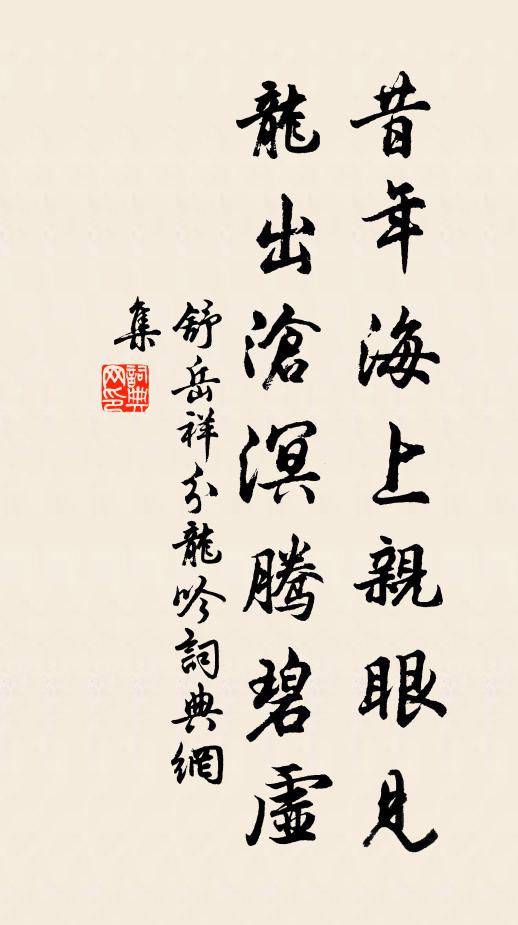 昔年海上親眼見
龍出滄溟騰碧虛
舒岳祥分龍吟詞典網
集
詞典
网印